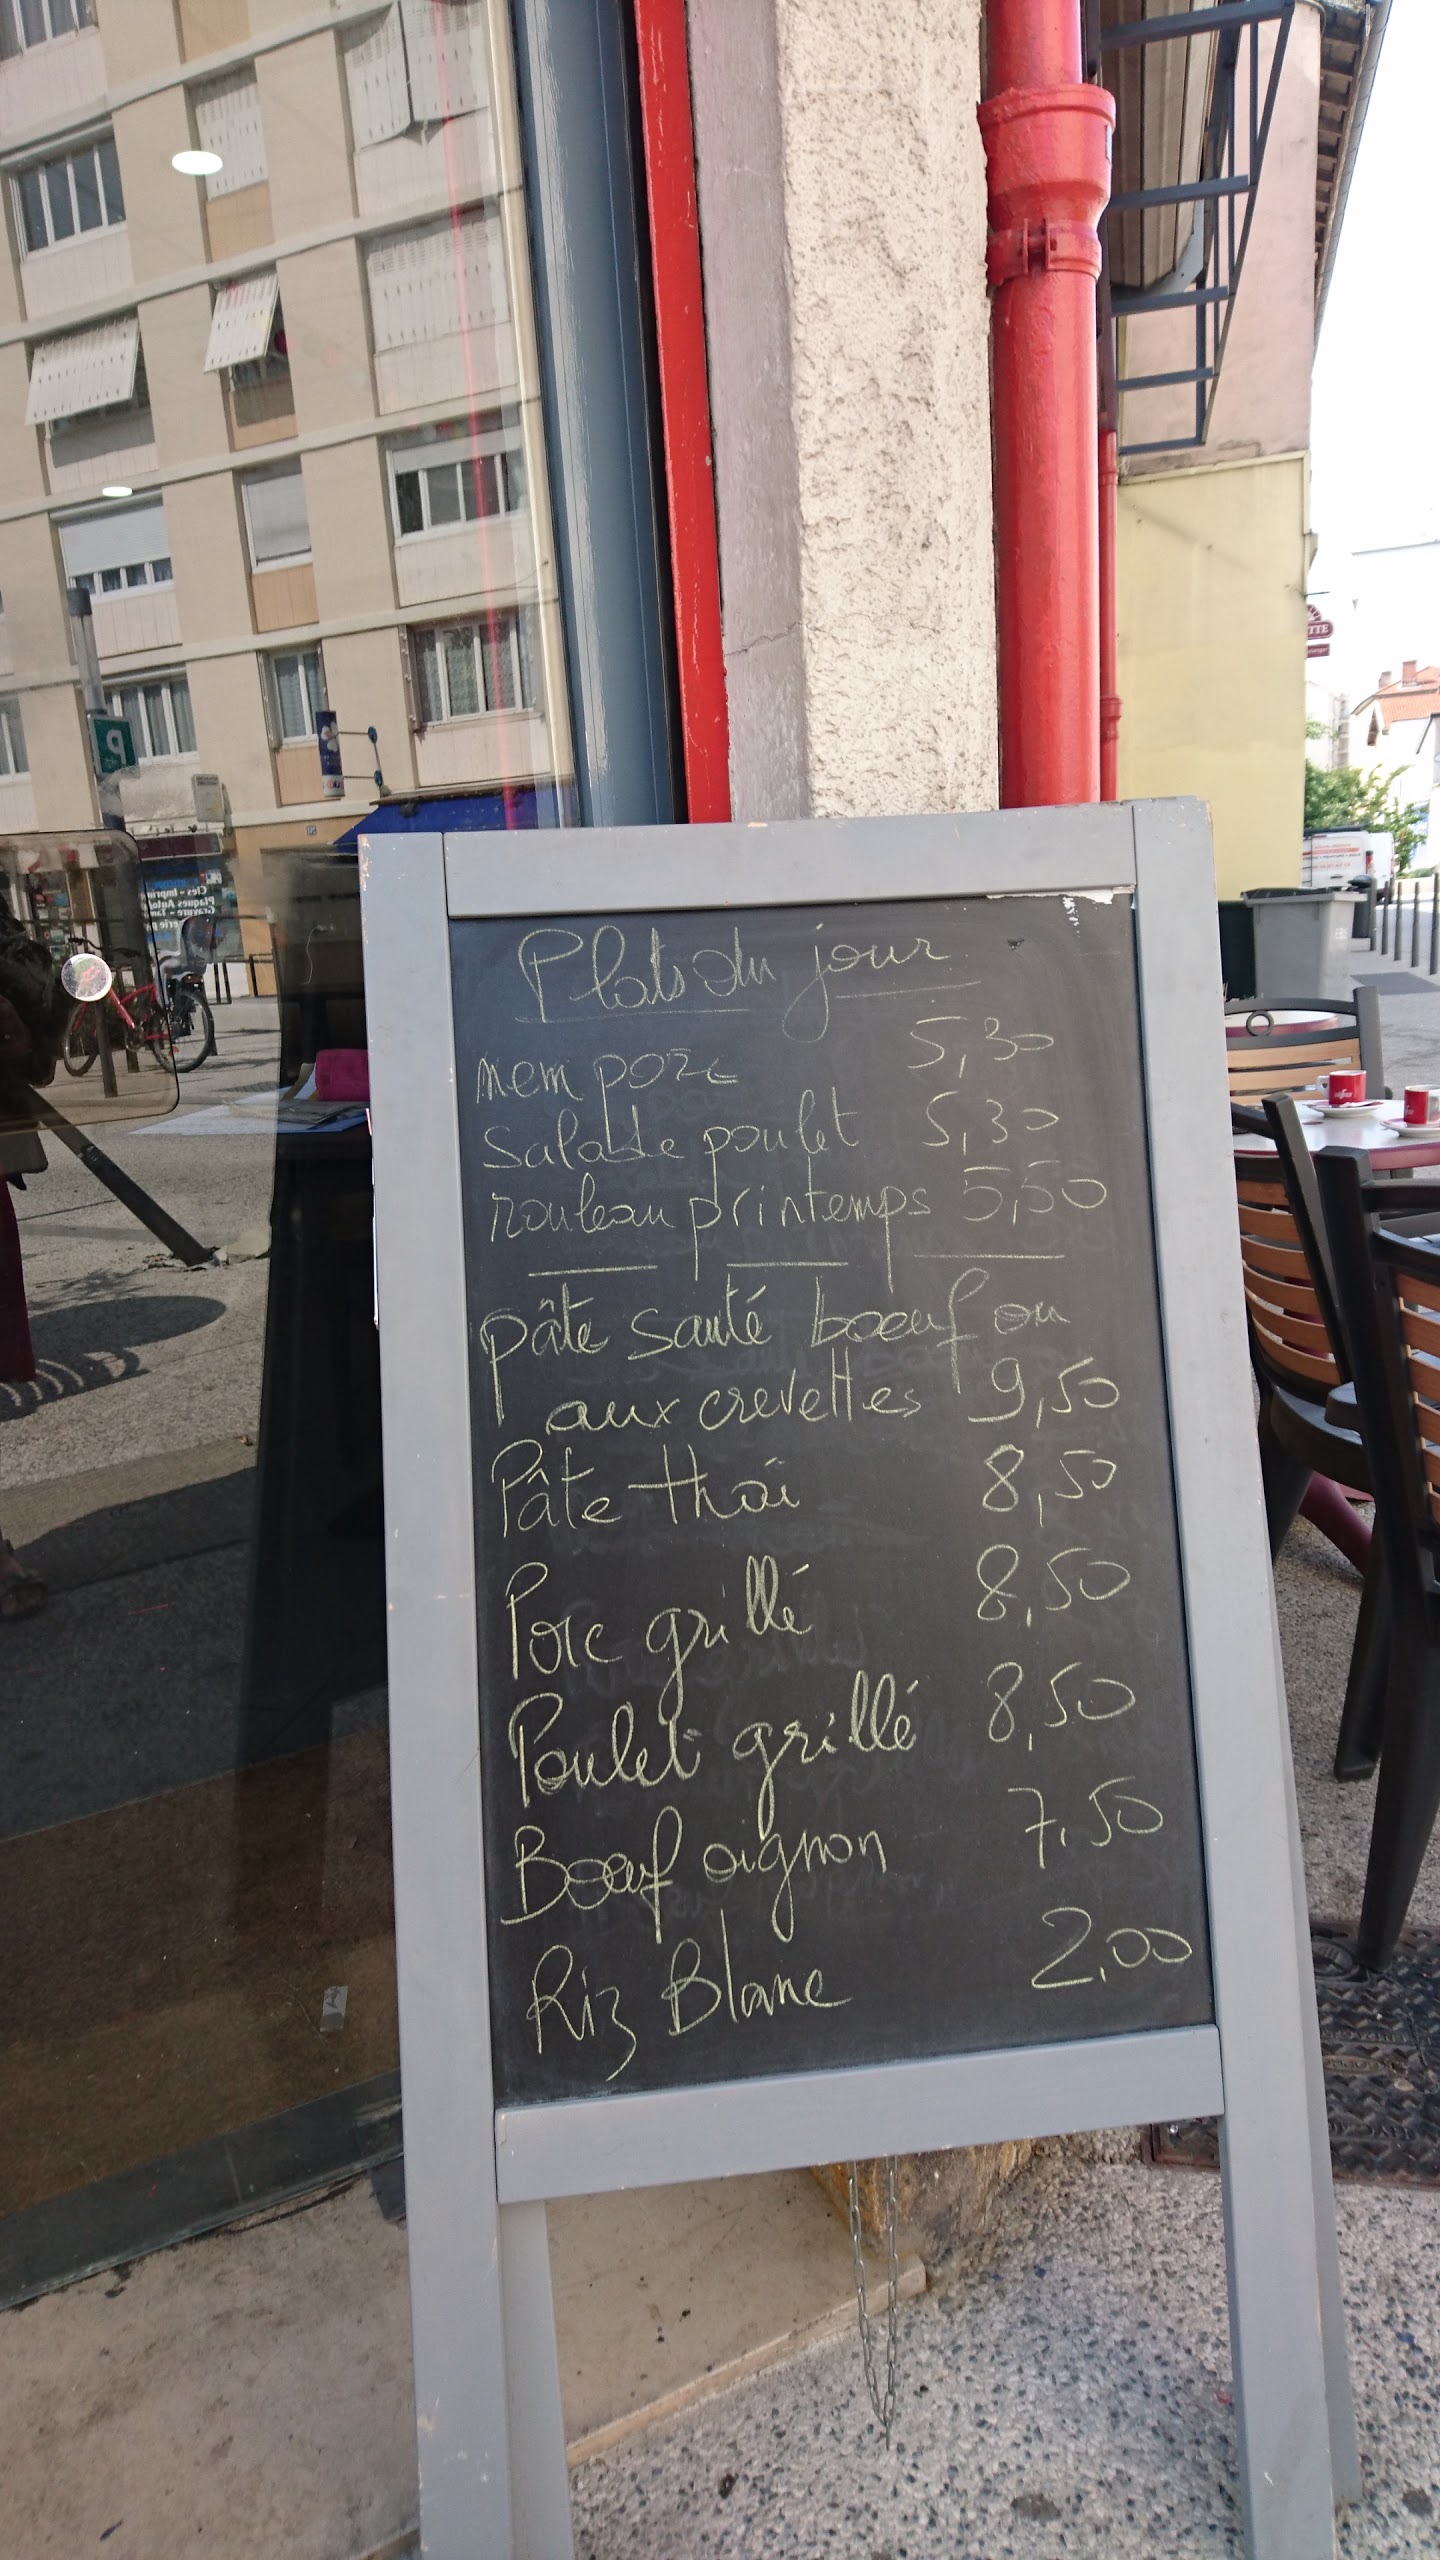 Plats du jour
nem porc 5,30
salade poulet 5,30
rouleau printemps 5,50
pâte sauté boeuf ou
aux crevettes 9,50
Pâte thaï 8,50
Porc grillé 8,50
Poulet grillé 8,50
Boeuf oignon 7,50
Riz Blanc 2,00
P
Clés - Imprim
Plaques Auto
Gravure - Tam
TTE